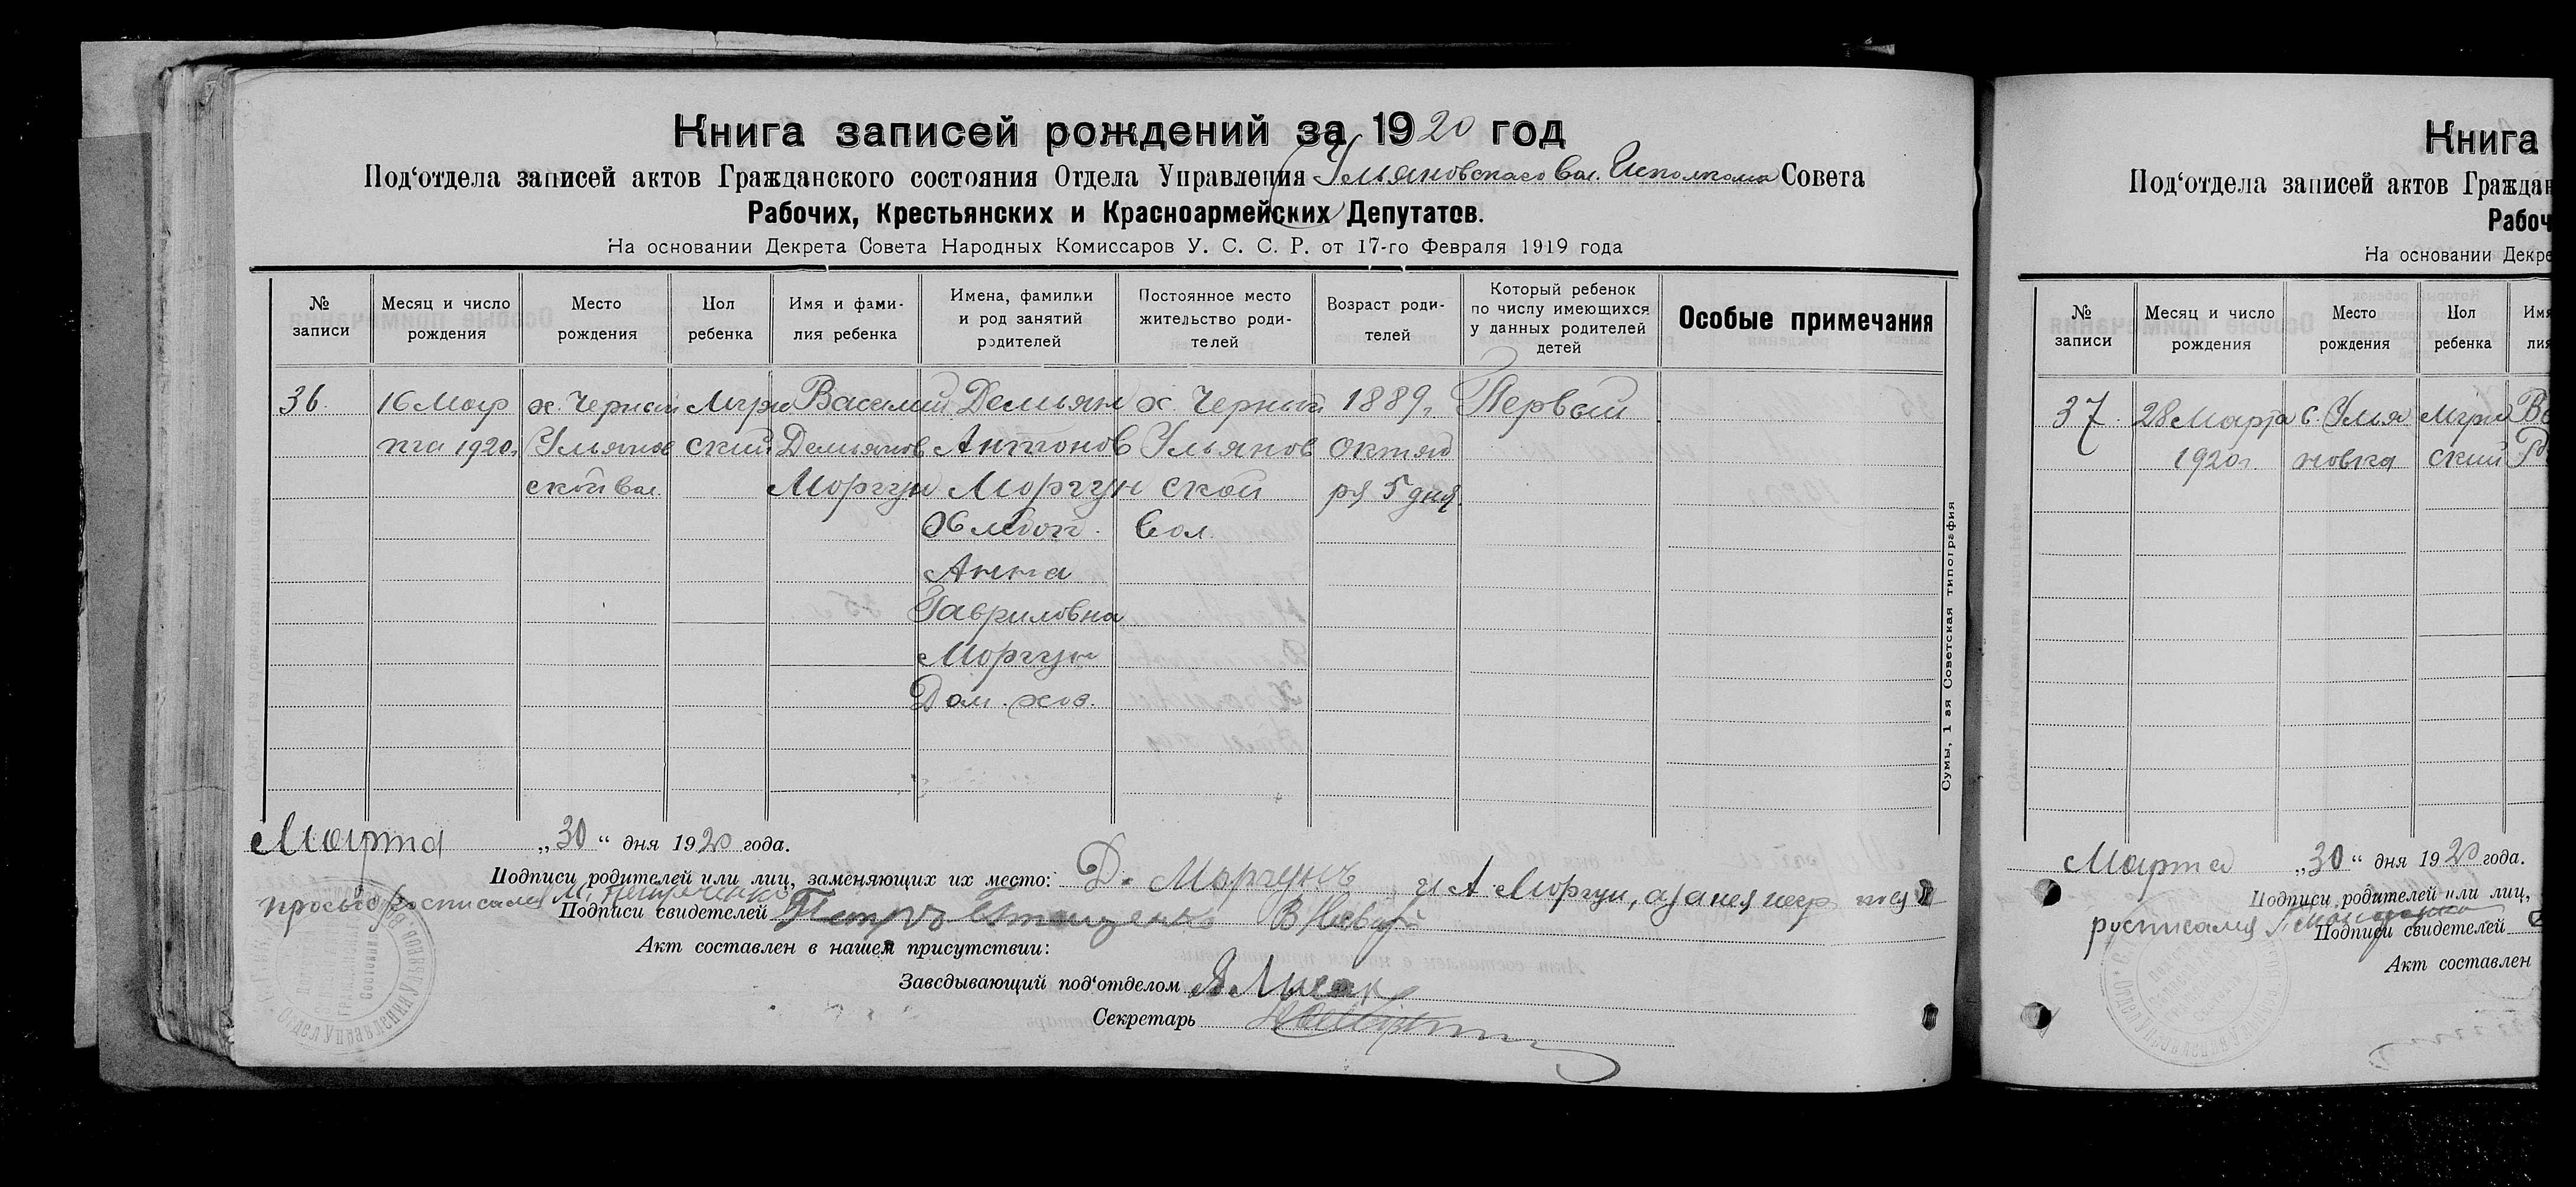 Книга записей рождений за 1920 год
Под‘отдела записей актов Гражданского состояния Отдела Управления Ульяновского Вол. Исполкома Совета
Рабочих, Крестьянских и Красноармейских Депутатов.
На основании Декрета Совета Народных Комиссаров У. С. С. Р. от 17-го Февраля 1919 года
№ записи
Месяц и число рождения
Место рождения
Пол ребенка
Имя и фами-
лия ребенка
Имена, фамилии
и род занятий
родителей
Постоянное место
жительство роди-
телей
Возраст роди-
телей
Который ребенок
по числу имеющихся
у данных родителей
детей
Особые примечания
36.
16 Мар
та 1920г.
х. Черный
Ульянов
ской вол.
Мужс
ский
Василий
Демьянов
Моргун
Демьян
Антонов
Моргун
Хлебоп.
Анна
Гавриловна
Моргун
Дом. хоз.
х. Черный
Ульянов
ской
Вол.
1889г.
октяб
ря 5 дня.
Первый
Сумы, 1 ая Советская типография
Марта „30“ дня 1920 года.
Подписи родителей или лиц, заменяющих их место: Д. Моргунъ и А Моргун, а за нея негр по ея
просьбе росписался М. Петренко
Подписи свидетелей Петръ
Акт составлен в нашем присутствии:
Заведывающий под‘отделом А Лысак
Секретарь
Книга
Под‘отдела записей актов Граждан
Рабоч
На основании Декре
№ записи
Месяц и число рождения
Место рождения
Пол ребенка
Имя
лия
37.
28 Марта
1920г.
с. Улья
новка
Мужс
ский
Марта „30“ дня 1920 года.
Подписи родителей или лиц,
росписался
Подписи свидетелей
Акт составлен